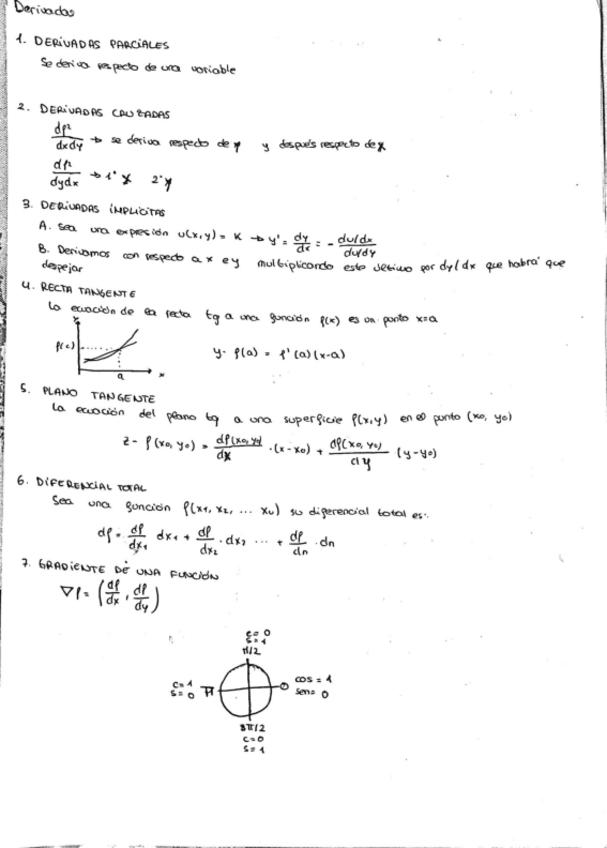 Derivadas
1. DERIVADAS PARCIALES
Se deriva respecto de una variable
2. DERIVADAS CRUZADAS
df²/dxdy → se deriva respecto de y y después respecto de x
df²/dydx → 1º x 2º y
3. DERIVADAS IMPLICITAS
A. Sea una expresión u(x,y) = K → y' = dy/dx = - du/dx / du/dy
B. Derivamos con respecto a x e y multiplicando este último por dy/dx que habrá que
despejar
4. RECTA TANGENTE
La ecuación de la recta tg a una función f(x) es un punto x=a
y
f(c)
a
x
y - f(a) = f'(a) (x-a)
5. PLANO TANGENTE
La ecuación del plano tg a una superficie f(x,y) en el punto (x0, y0)
z - f(x0, y0) = df(x0, y0)/dx · (x-x0) + df(x0, y0)/dy (y-y0)
6. DIFERENCIAL TOTAL
Sea una función f(x1, x2, ... xn) su diferencial total es:
df = df/dx1 dx1 + df/dx2 · dx2 ... + df/dn · dn
7. GRADIENTE DE UNA FUNCIÓN
∇f = (df/dx, df/dy)
c = 0
s = 1
π/2
c = 1
s = 0
π
0
cos = 1
sen = 0
3π/2
c = 0
s = 1